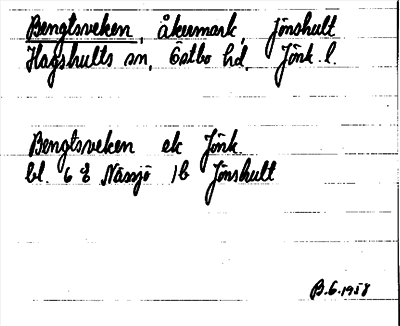 Bengtsveken, åkermark, Jönshult
Hagshults sn, Östbo hd, Jönk. l.
Bengtsveken ek Jönk.
bl. 6 Nässjö 1b Jönshult
B.G. 1958